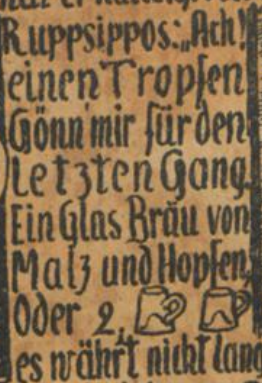 Ruppsippos: „Ach!
einen Tropfen
Gönn' mir für den
letzten Gang.
Ein Glas Bräu von
Malz und Hopfen,
Oder 2,
es währt nicht lang